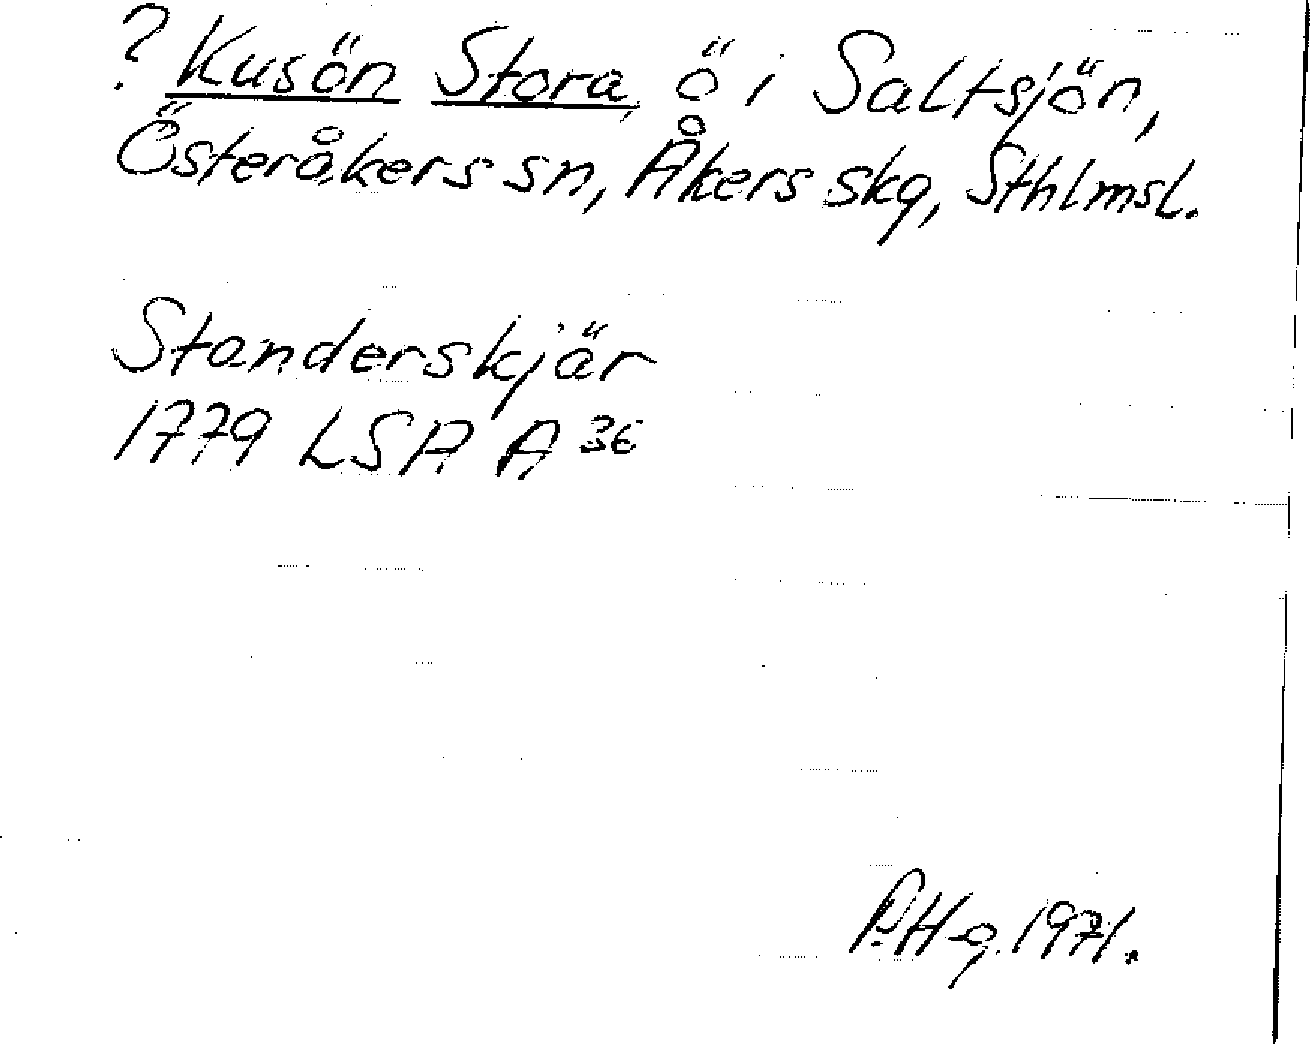 ? Kusön Stora, ö i Saltsjön,
Österåkers sn, Åkers skg, Sthlmsl.
Standerskjär
1779 LSA A 36
P.Hg. 1971.